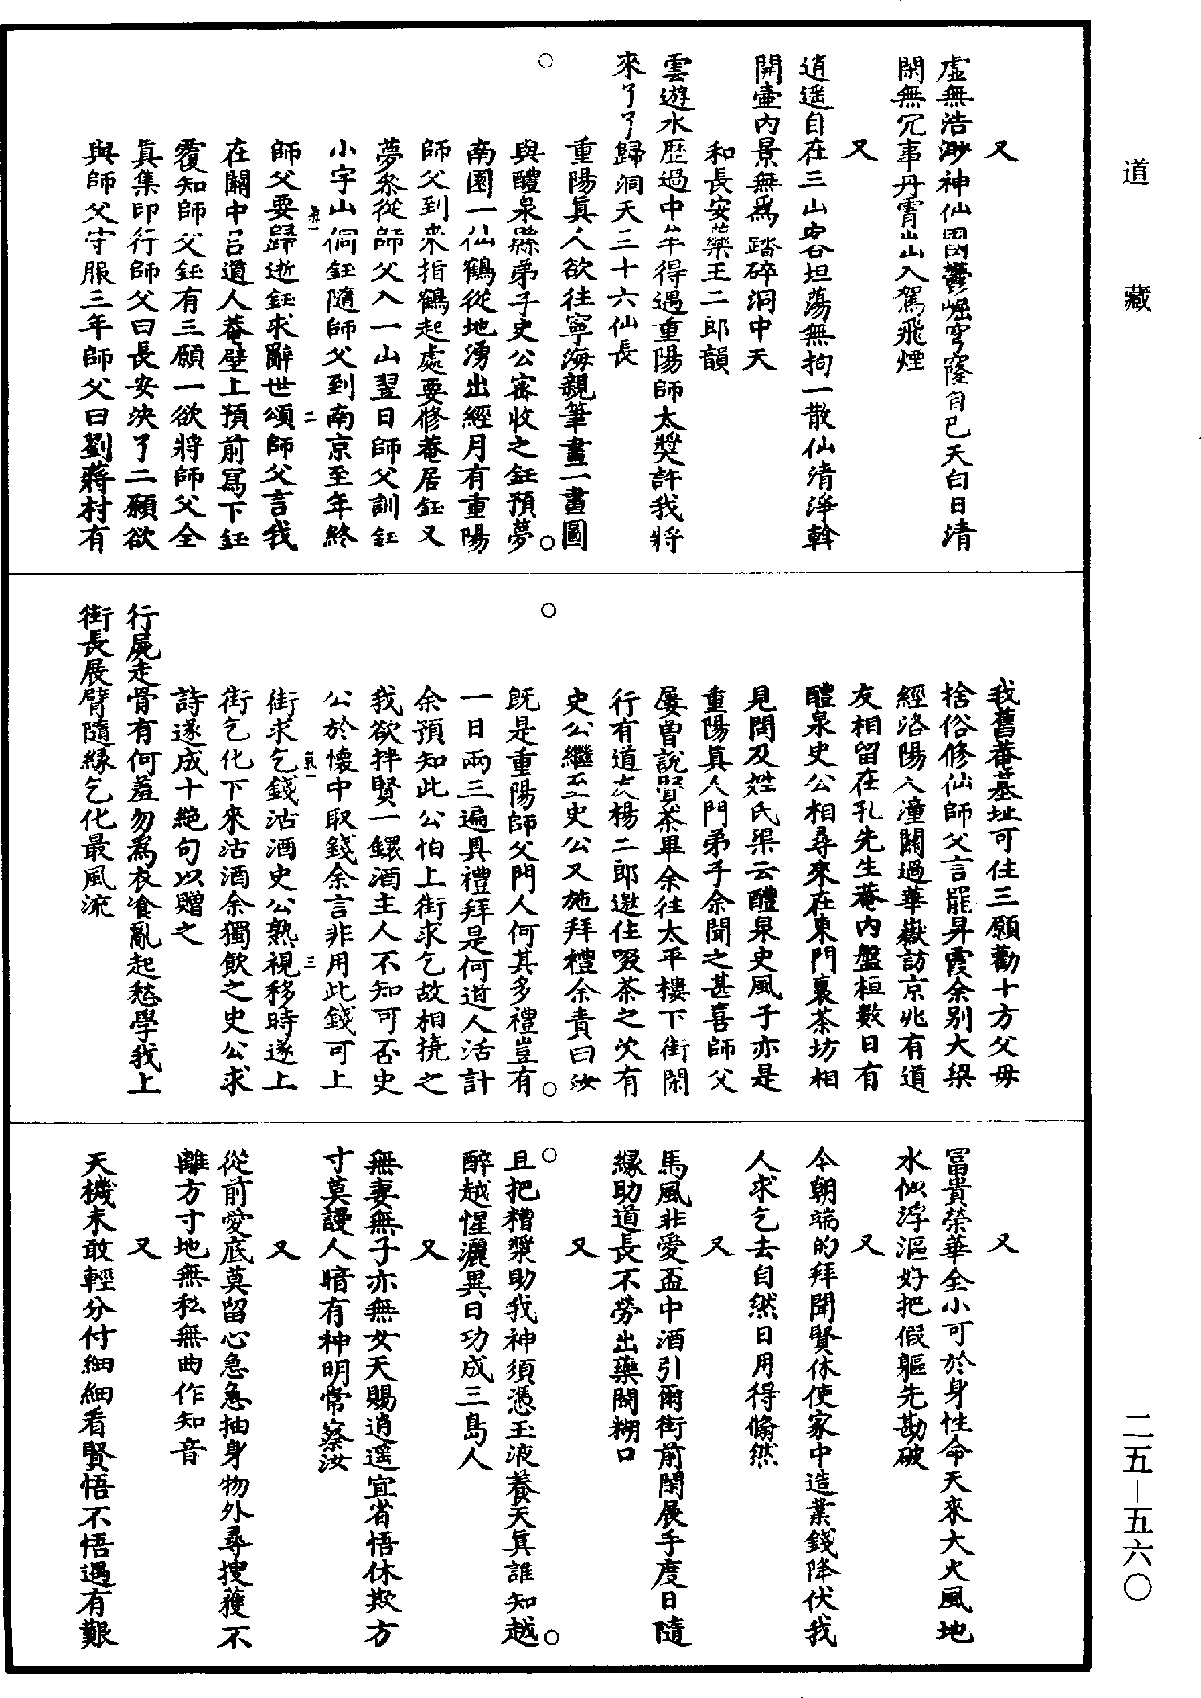 道藏
又
虛無浩渺神仙國鬱崛穹窿自巳天白日清
閑無冗事丹霄出入駕飛煙
又
逍遥自在三山客坦蕩無拘一散仙清淨斡
開壺内景無爲踏碎洞中天
和長安藥王二郎韻
雲遊水歷過中牟得遇重陽師太奬許我將
來了了歸洞天三十六仙長
重陽眞人欲往寧海親筆畫一畫圖
與醴泉縣弟子史公密收之鈺預夢
南園一仙鶴從地湧出經月有重陽
師父到來指鶴起處要修菴居鈺又
夢㕘從師父入一山翌日師父訓鈺
小字山侗鈺隨師父到南京至年終
師父要歸逝鈺求辭世頌師父言我
在關中呂道人菴壁上預前寫下鈺
覆知師父鈺有三願一欲將師父全
眞集印行師父曰長安決了二願欲
與師父守服三年師父曰劉蔣村有
我舊菴基址可住三願勸十方父毋
捨俗修仙師父言罷昇霞余别大梁
經洛陽入潼關過華嶽訪京兆有道
友相留在孔先生菴内盤桓數日有
醴泉史公相尋來在東門裏茶坊相
見問及姓氏渠云醴泉史風子亦是
重陽眞人門弟子余聞之甚喜師父
屢曾說賢茶畢余往太平樓下街閑
行有道友楊二郎邀住啜茶之次有
史公繼至史公又施拜禮余責曰汝
旣是重陽師父門人何其多禮豈有
一日兩三遍具禮拜是何道人活計
余預知此公怕上街求乞故相撓之
我欲拌賢一鐶酒主人不知可否史
公於懷中取錢余言非用此錢可上
街求乞錢沽酒史公熟視移時遂上
街乞化下來沽酒余獨飲之史公求
詩遂成十絶句以贈之
行屍走骨有何羞勿爲衣飡亂起愁學我上
街長展臂隨緣乞化最風流
又
冨貴榮華全小可於身性命天來大火風地
水似浮漚好把假軀先勘破
又
今朝端的拜聞賢休使家中造業錢降伏我
人求乞去自然日用得翛然
又
馬風非愛盃中酒引爾街前閑展手度日隨
緣助道長不勞出藥閑糊口
又
且把糟漿助我神須憑玉液養天眞誰知越
醉越惺灑異日功成三島人
又
無妻無子亦無女天賜逍遥宜省悟休欺方
寸莫謾人暗有神明常察汝
又
從前愛底莫留心急急抽身物外尋搜蒦不
離方寸地無私無曲作知音
又
天機未敢輕分付細細看賢悟不悟遇有艱
二五—五六〇